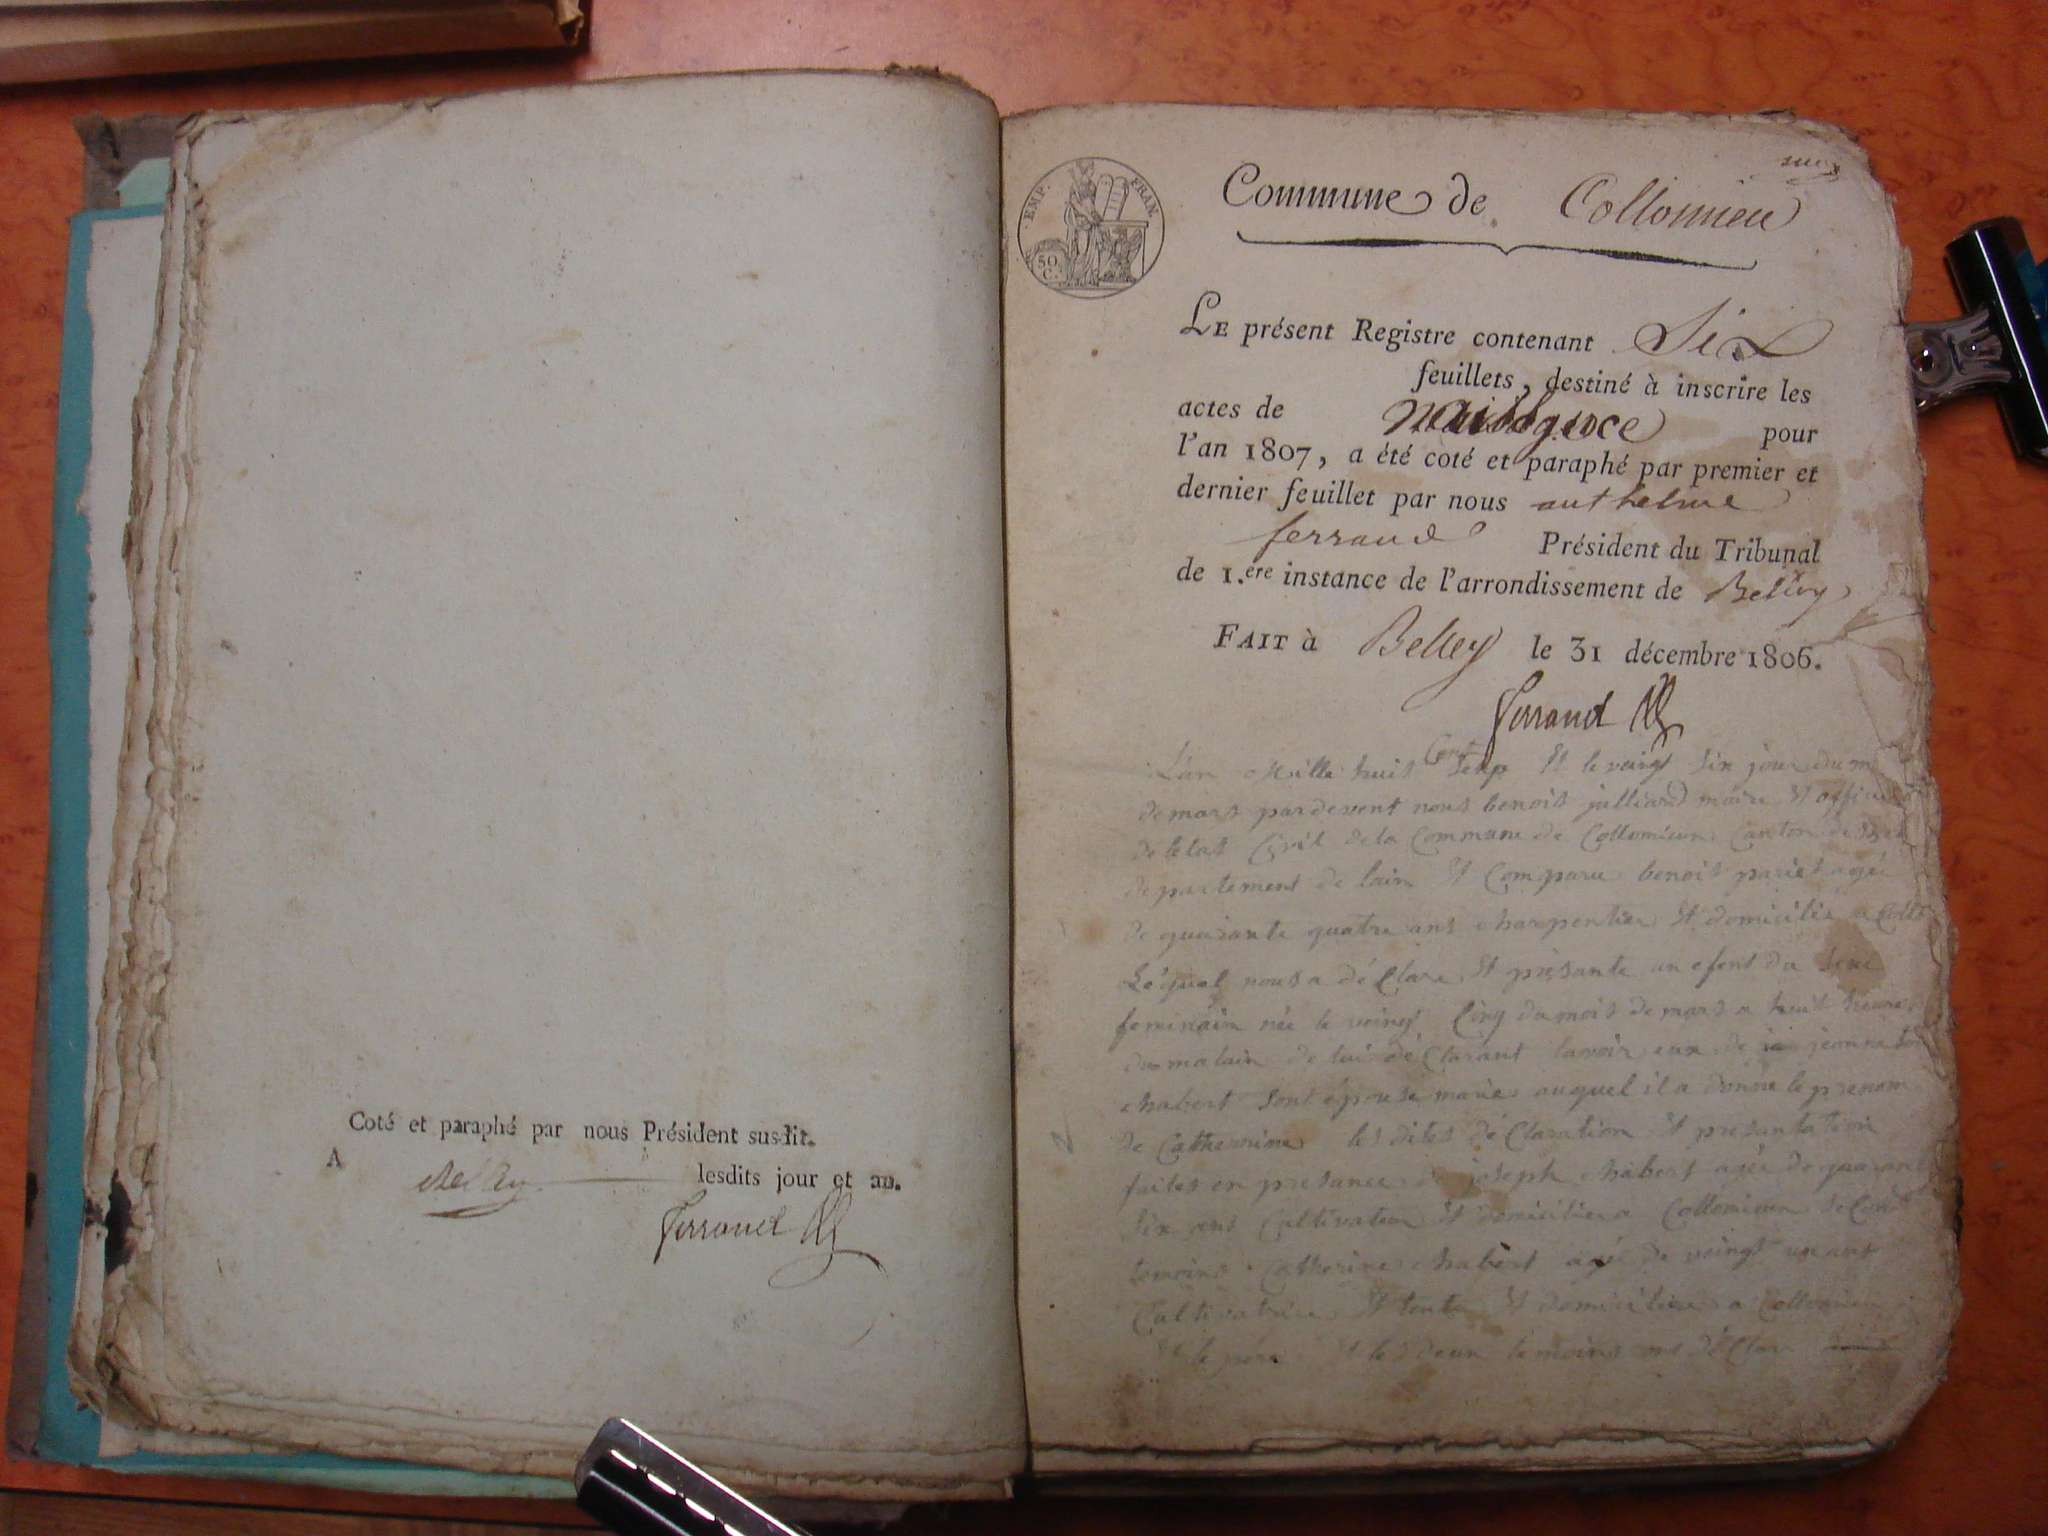 Coté et paraphé par nous Président susdit.
A Belley lesdits jour et an.
Ferrand
EMP. FRAN.
50 C.
Commune de Collomieu
LE présent Registre contenant Six
feuillets, destiné à inscrire les
actes de naissance pour
l'an 1807, a été coté et paraphé par premier et
dernier feuillet par nous anthelme
ferrand Président du Tribunal
de 1.ere instance de l'arrondissement de Belley
FAIT à Belley le 31 décembre 1806.
Ferrand
L'an Mille huit Cent Sept Et le veingt Six jour du m
de mars pardevent nous benoit julliard maire Et officier
de letat Civil de la Commune de Collomieux Canton de
departement de lain Et Comparu benoit pariet agé
de quarante quatre ans charpentier Et domicilié a Collo
Léquel nous a déClare Et présante un efent du Sexe
feminain née le veingt Cinq du mois de mars a huit heure
du matain de lui déClarant lavoir eux de jeannaton
chabert sont épouse marie auquel il a donné le prenom
de Catherinne les dites déClaration Et presantation
faites en presance de joseph chabert agée de quarant
Six ans Cultivateur Et domicilié a Collomieux Second
temoins Catherine chabert agée de veingt un ans
Cultivatrice Et toute Et domiciliée a Collomieu
Et le père Et les deux temoins ont déClar